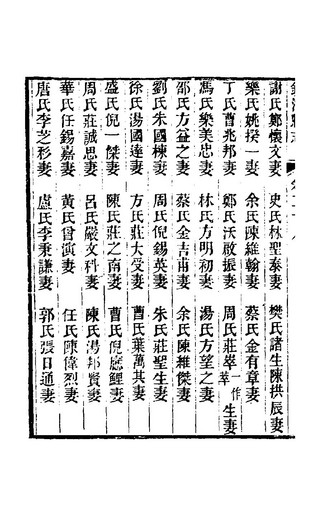 謝氏鄭懷文妻　史氏林聖泰妻　樊氏諸生陳拱辰妻
樂氏姚揆一妻　余氏陳維翰妻　蔡氏金有章妻
丁氏曹兆邦妻　鄭氏沃啟振妻　周氏莊一作生妻
馮氏樂美忠妻　林氏方明初妻　湯氏方望之妻
邵氏方益之妻　蔡氏金吉甫妻　余氏陳維傑妻
劉氏朱國棟妻　周氏倪錫英妻　朱氏莊聖生妻
徐氏湯國達妻　方氏莊大受妻　曹氏葉萬其妻
盛氏倪一傑妻　陳氏莊之南妻　曹氏倪應鯉妻
周氏莊誠思妻　呂氏嚴文科妻　陳氏湯邦賢妻
華氏任錫嘉妻　黃氏曾演妻　任氏陳偉烈妻
唐氏李芝杉妻　盧氏李秉謙妻　郭氏張日通妻